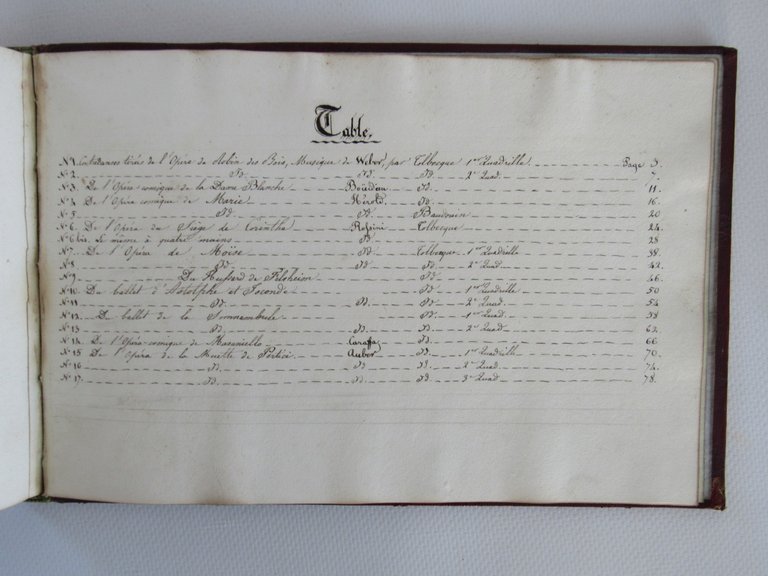 Table.
N° 1. Contredanses tirées de l'Opera de Robin des Bois, Musique de Weber, par Tolbecque 1er Quadrille Page 3.
N° 2. Id. Id. Id. 2e Quad. 7.
N° 3. De l'Opera comique de la Dame Blanche Boieldieu Id. 11.
N° 4. De l'Opera comique de Marie Hérold Id. 16.
N° 5. Id. Id. Baudouin 20
N° 6. De l'Opéra du Siège de Corinthe Rossini Tolbecque 24.
N° 6 bis. Le même à quatre mains Id. 28
N° 7. De l'Opéra de Moïse Id. Tolbecque 1er Quadrille 38.
N° 8. Id. Id. Id. 2e Quad. 42.
N° 9 Du Hussard de Id. 46.
N° 10. Du ballet d'Astolphe et Joconde Id. 1er Quadrille 50
N° 11. Id. Id. Id. 2e Quad. 54
N° 12. Du ballet de la Somnambule Id. 1er Quadrille 58
N° 13 Id. Id. Id. 2e Quad. 62.
N° 14. De l'Opéra-comique de Masaniello Carafa Id. 66
N° 15 De l'Opéra de la Muette de Portici Auber Id. 1er Quadrille 70.
N° 16 Id. Id. Id. 2e Quad. 74.
N° 17. Id. Id. Id. 3e Quad 78.